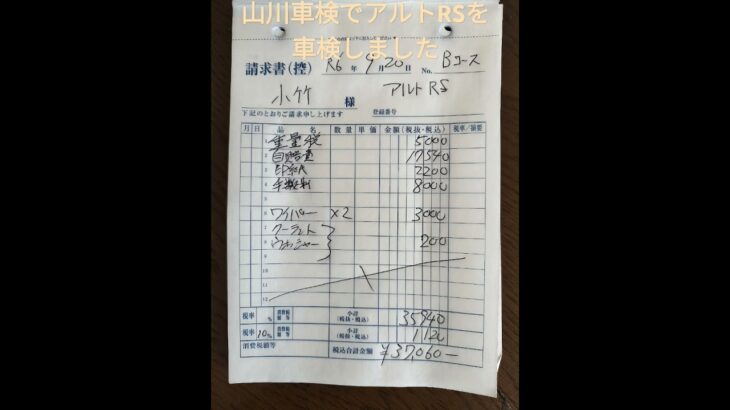 山川車検でアルトRSを
車検しました
請求書(控) R6年9月20日 No. Bコース
小竹 様 アルトRS
下記のとおりご請求申し上げます 登録番号
月 日 品名 数量 単価 金額(税抜・税込) 税率/摘要
1 重量税 5000
2 自賠責 17540
3 印紙代 2200
4 手数料 8000
5
6 ワイパー ×2 3000
7 クーラント
8 ウォッシャー 200
9
10
11
12
税率 % 消費税額等 小計(税抜・税込) 35940
税率 10% 消費税額等 小計(税抜・税込) 1120
消費税額等 税込合計金額 ¥37,060-